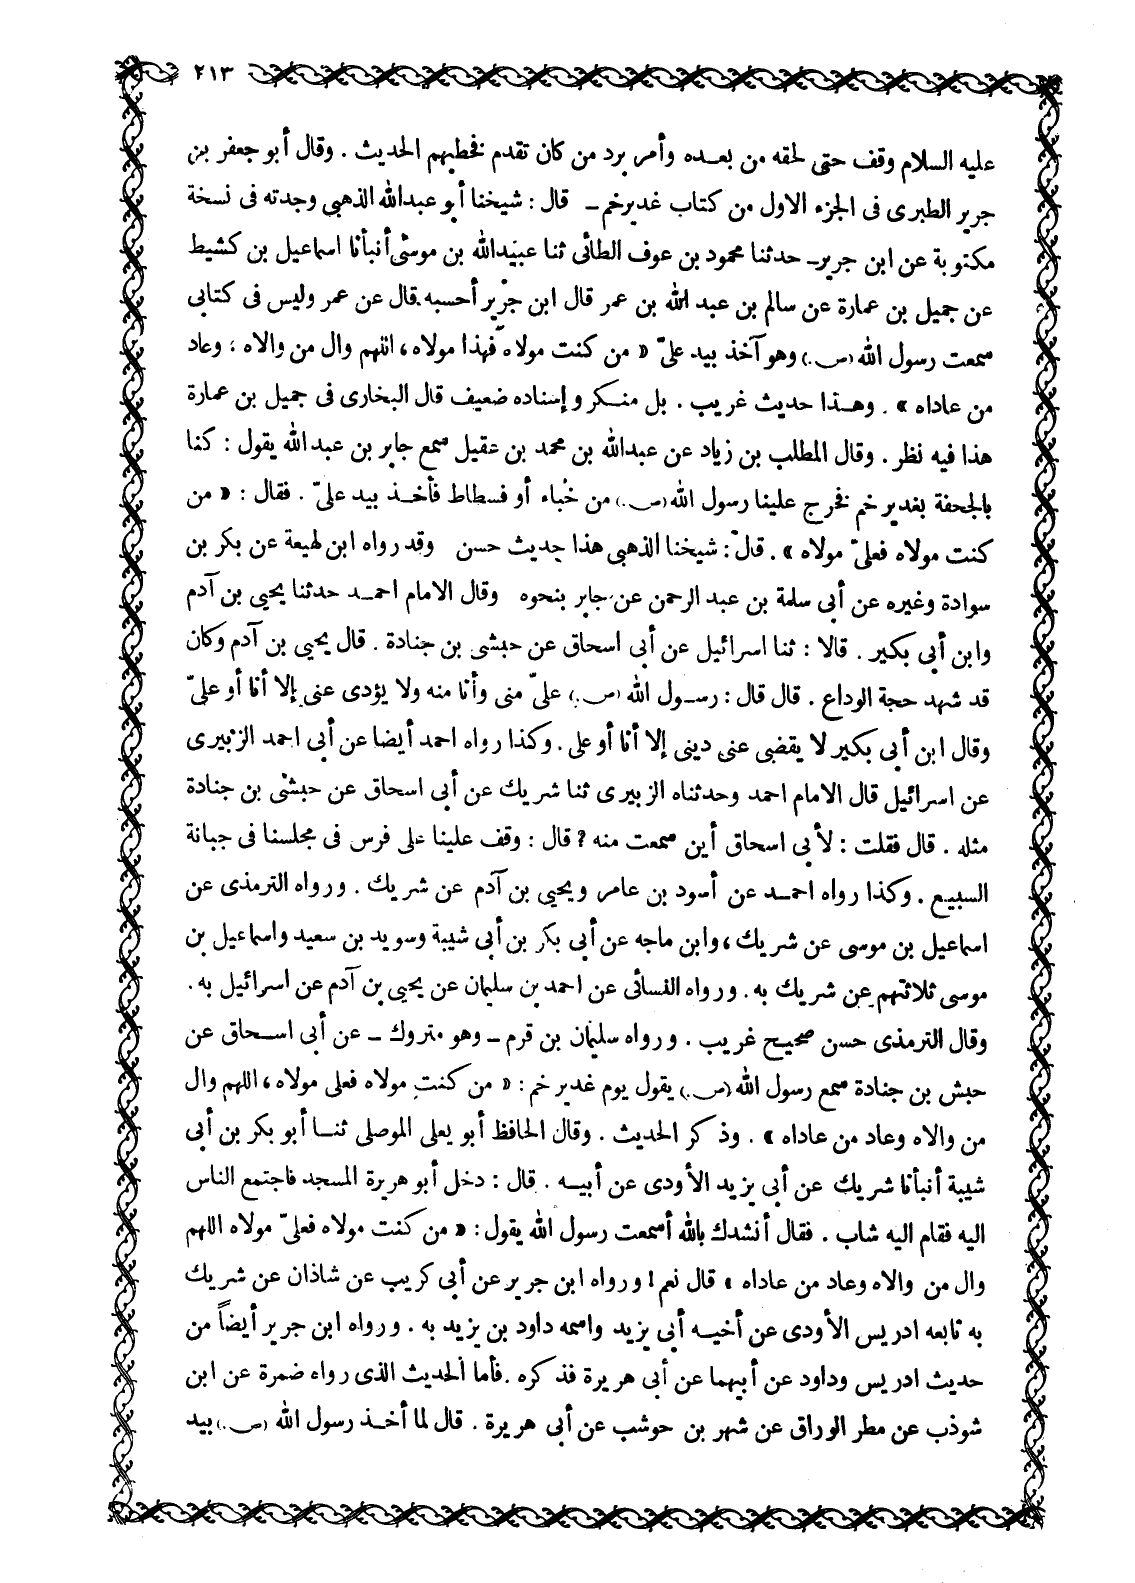 ٢١٣
عليه السلام وقف حتى لحقه من بعـده وأمر برد من كان تقدم فخطبهم الحديث . وقال أبو جعفر بن
جرير الطبرى فى الجزء الاول من كتاب غدير خم ــ قال : شيخنا أبو عبدالله الذهبي وجدته فى نسخة
مكتوبة عن ابن جرير ــ حدثنا محمود بن عوف الطائى ثنا عبيدالله بن موسى أنبأنا اسماعيل بن كشيط
عن جميل بن عمارة عن سالم بن عبد الله بن عمر قال ابن جرير أحسبه قال عن عمر وليس فى كتابى
سمعت رسول الله (ص.) وهو آخذ بيد علىّ « من كنت مولاه فهذا مولاه ، اللهم وال من والاه ؛ وعاد
من عاداه » . وهـذا حديث غريب . بل منـكر وإسناده ضعيف قال البخارى فى جميل بن عمارة
هذا فيه نظر . وقال المطلب بن زياد عن عبدالله بن محمد بن عقيل سمع جابر بن عبد الله يقول : كنا
بالجحفة بغدير خم فخرج علينا رسول الله (ص.) من خباء أو فسطاط فأخـذ بيد علىّ . فقال : « من
كنت مولاه فعلىّ مولاه » . قال : شيخنا الذهبي هذا حديث حسن وقد رواه ابن لهيعة عن بكر بن
سوادة وغيره عن أبى سلمة بن عبد الرحمن عن جابر بنحوه وقال الامام احمـد حدثنا يحيى بن آدم
وابن أبى بكير . قالا : ثنا اسرائيل عن أبى اسحاق عن حبشى بن جنادة . قال يحيى بن آدم وكان
قد شهد حجة الوداع . قال قال : رسـول الله (ص.) علىّ منى وأنا منه ولا يؤدى عنى إلا أنا أو علىّ
وقال ابن أبى بكير لا يقضى عنى دينى إلا أنا أو على . وكذا رواه احمد أيضا عن أبى احمد الزبيرى
عن اسرائيل قال الامام احمد وحدثناه الزبيرى ثنا شريك عن أبى اسحاق عن حبشى بن جنادة
مثله . قال فقلت : لأبى اسحاق أين سمعت منه ؟ قال : وقف علينا على فرس فى مجلسنا فى جبانة
السبيـع . وكذا رواه احمـد عن أسود بن عامر ويحيى بن آدم عن شريك . ورواه الترمذى عن
اسماعيل بن موسى عن شريك ، وابن ماجه عن أبى بكر بن أبى شيبة وسويد بن سعيد واسماعيل بن
موسى ثلاثتهم عن شريك به . ورواه النسائى عن احمد بن سليمان عن يحيى بن آدم عن اسرائيل به .
وقال الترمذى حسن صحيـح غريب . ورواه سليمان بن قرم ــ وهو متروك ــ عن أبى اسـحاق عن
حبش بن جنادة سمع رسول الله (ص.) يقول يوم غدير خم : « من كنت مولاه فعلى مولاه ، اللهم وال
من والاه وعاد من عاداه » . وذكر الحديث . وقال الحافظ أبو يعلى الموصلى ثنـا أبو بكر بن أبى
شيبة أنبأنا شريك عن أبى يزيد الأودى عن أبيـه . قال : دخل أبو هريرة المسجد فاجتمع الناس
اليه فقام اليه شاب . فقال أنشدك بالله أسمعت رسول الله يقول : « من كنت مولاه فعلىّ مولاه اللهم
وال من والاه وعاد من عاداه » قال نعم ! ورواه ابن جرير عن أبى كريب عن شاذان عن شريك
به تابعه ادريس الأودى عن أخيـه أبى يزيد واسمه داود بن يزيد به . ورواه ابن جرير أيضاً من
حديث ادريس وداود عن أبيهما عن أبى هريرة فذكره . فأما الحديث الذى رواه ضمرة عن ابن
شوذب عن مطر الوراق عن شهر بن حوشب عن أبى هريرة . قال لما أخـذ رسول الله (ص.) بيد